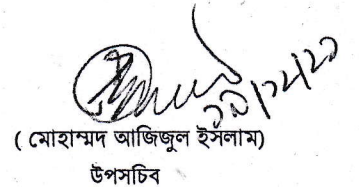 ( মোহাম্মদ আজিজুল ইসলাম)
উপসচিব